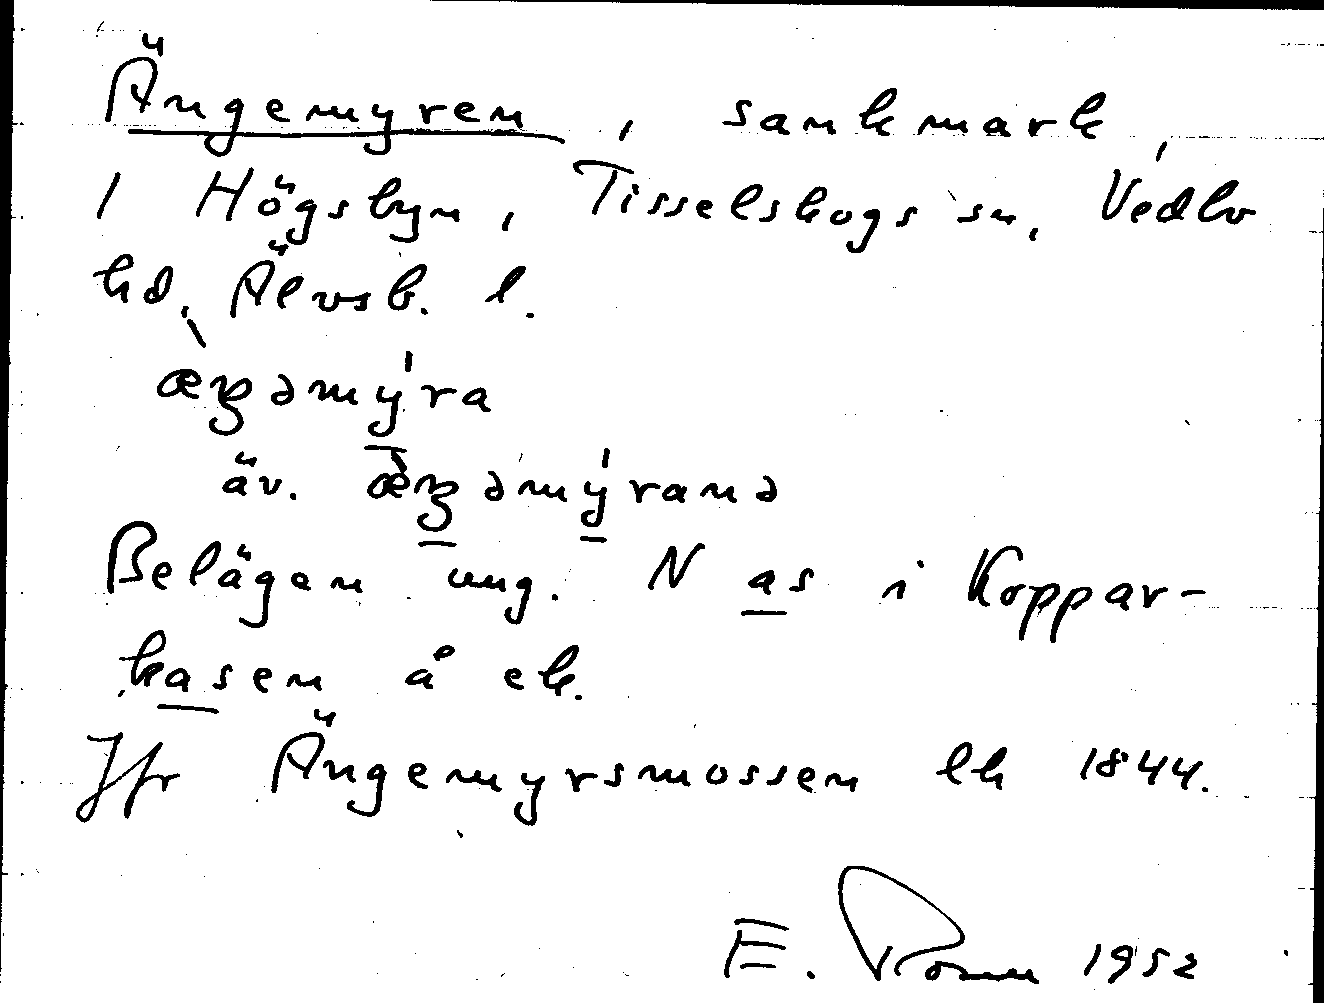 Ängemyren, sankmark,
i Högsbyn, Tisselskogs sn, Vedbo
hd, Älvsb. l.
äv.
Belägen ung. N as i Koppar-
kasen å ek.
Jfr Ängemyrsmossen lk 1844.
E. 1952